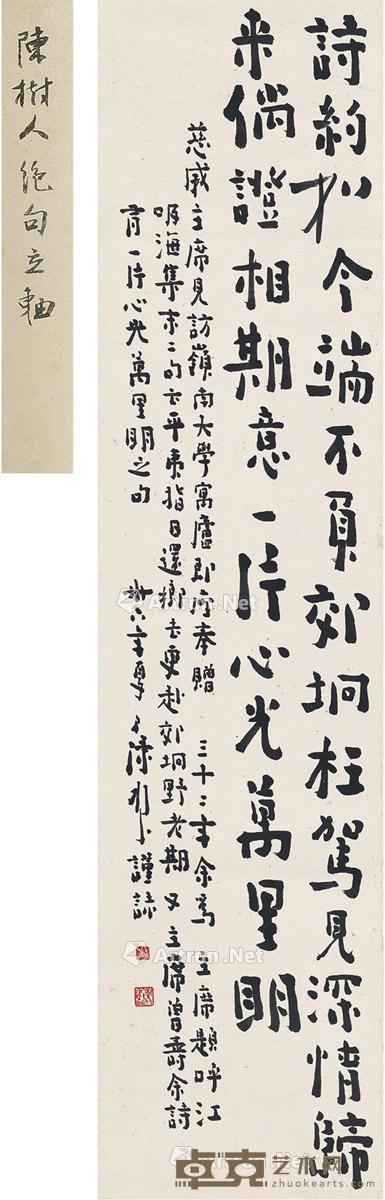 詩約扵今端不負郊坰枉駕見深情歸
来倘證相期意一片心光萬里明
慈威主席見訪嶺南大學寓廬即席奉贈 三十二年余為 主席題呼江
嘯海集末二句云平東指日還鄉去更赴郊坰野老期又 主席曾壽余詩
有一片心光萬里明之句
卅六年夏 陳樹人 謹誌
陳樹人絶句立軸
Artron.Net
Artron.Net
Artron.Net
Artron.Net
卓克艺术网
zhuokearts.com